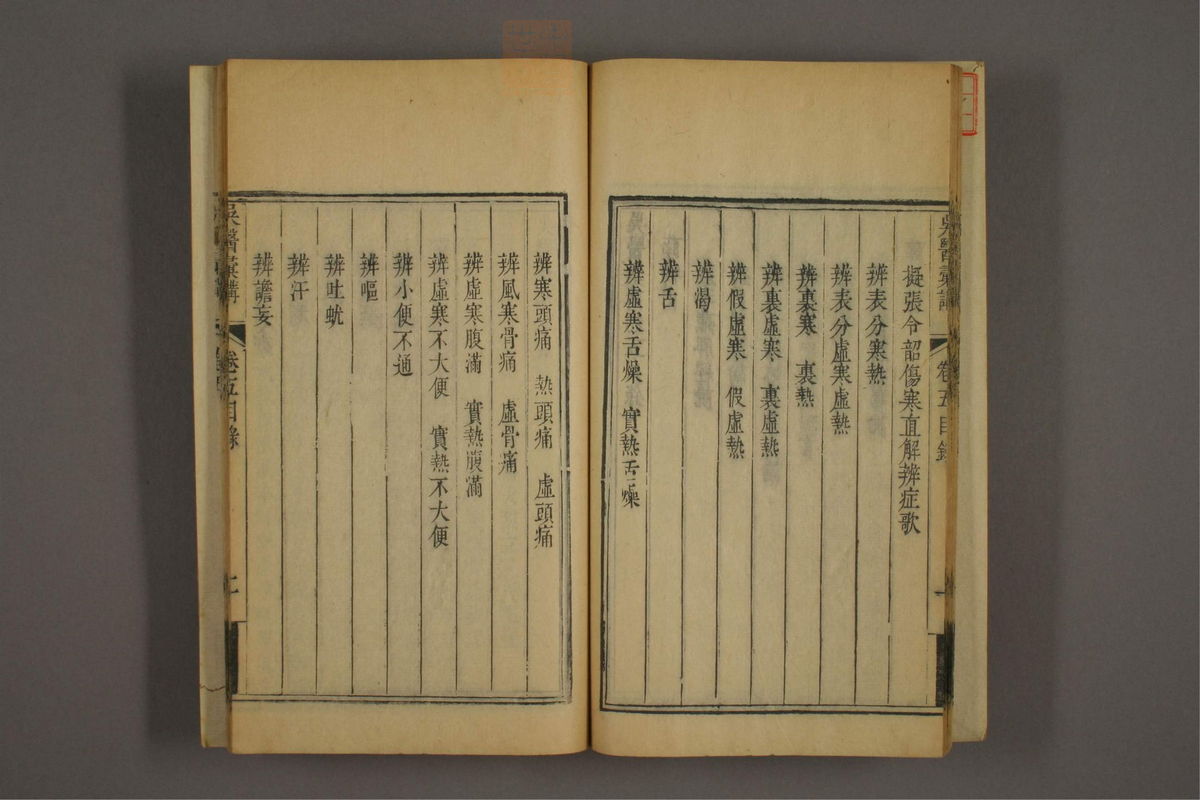 擬張令韶傷寒直解辨症歌
辨表分寒熱
辨表分虛寒虛熱
辨裏寒　裏熱
辨裏虛寒　裏虛熱
辨假虛寒　假虛熱
辨渴
辨舌
辨虛寒舌燥　實熱舌燥
卷五目錄
辨寒頭痛　熱頭痛　虛頭痛
辨風寒骨痛　虛骨痛
辨虛寒腹滿　實熱腹滿
辨虛寒不大便　實熱不大便
辨小便不通
辨嘔
辨吐蚘
辨汗
辨譫妄
吳醫彙講
卷五目錄